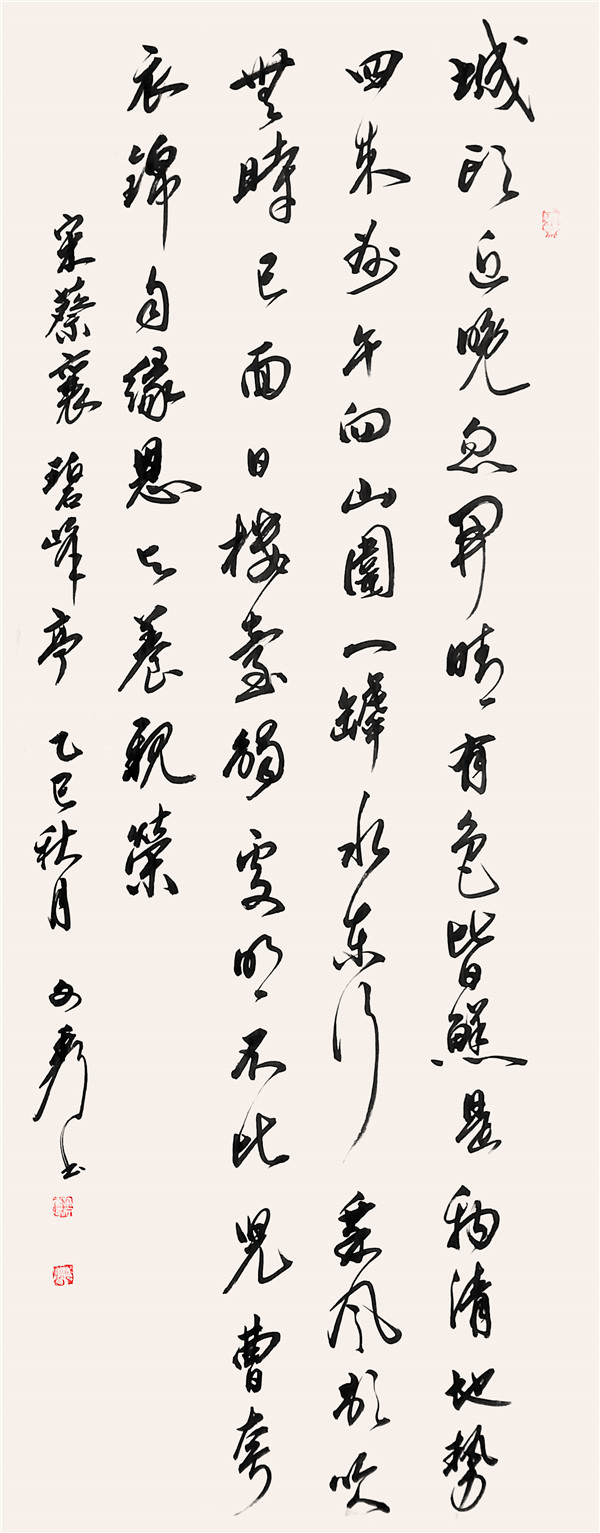 城頭近晚忽開晴有色皆鮮是物清地勢
四來午向山圍一罅水東行乘風歌吹
無時已面日樓臺觸處明不比兒曹夸
衣錦自緣恩与養親榮
宋蔡襄碧峰亭乙巳秋月书